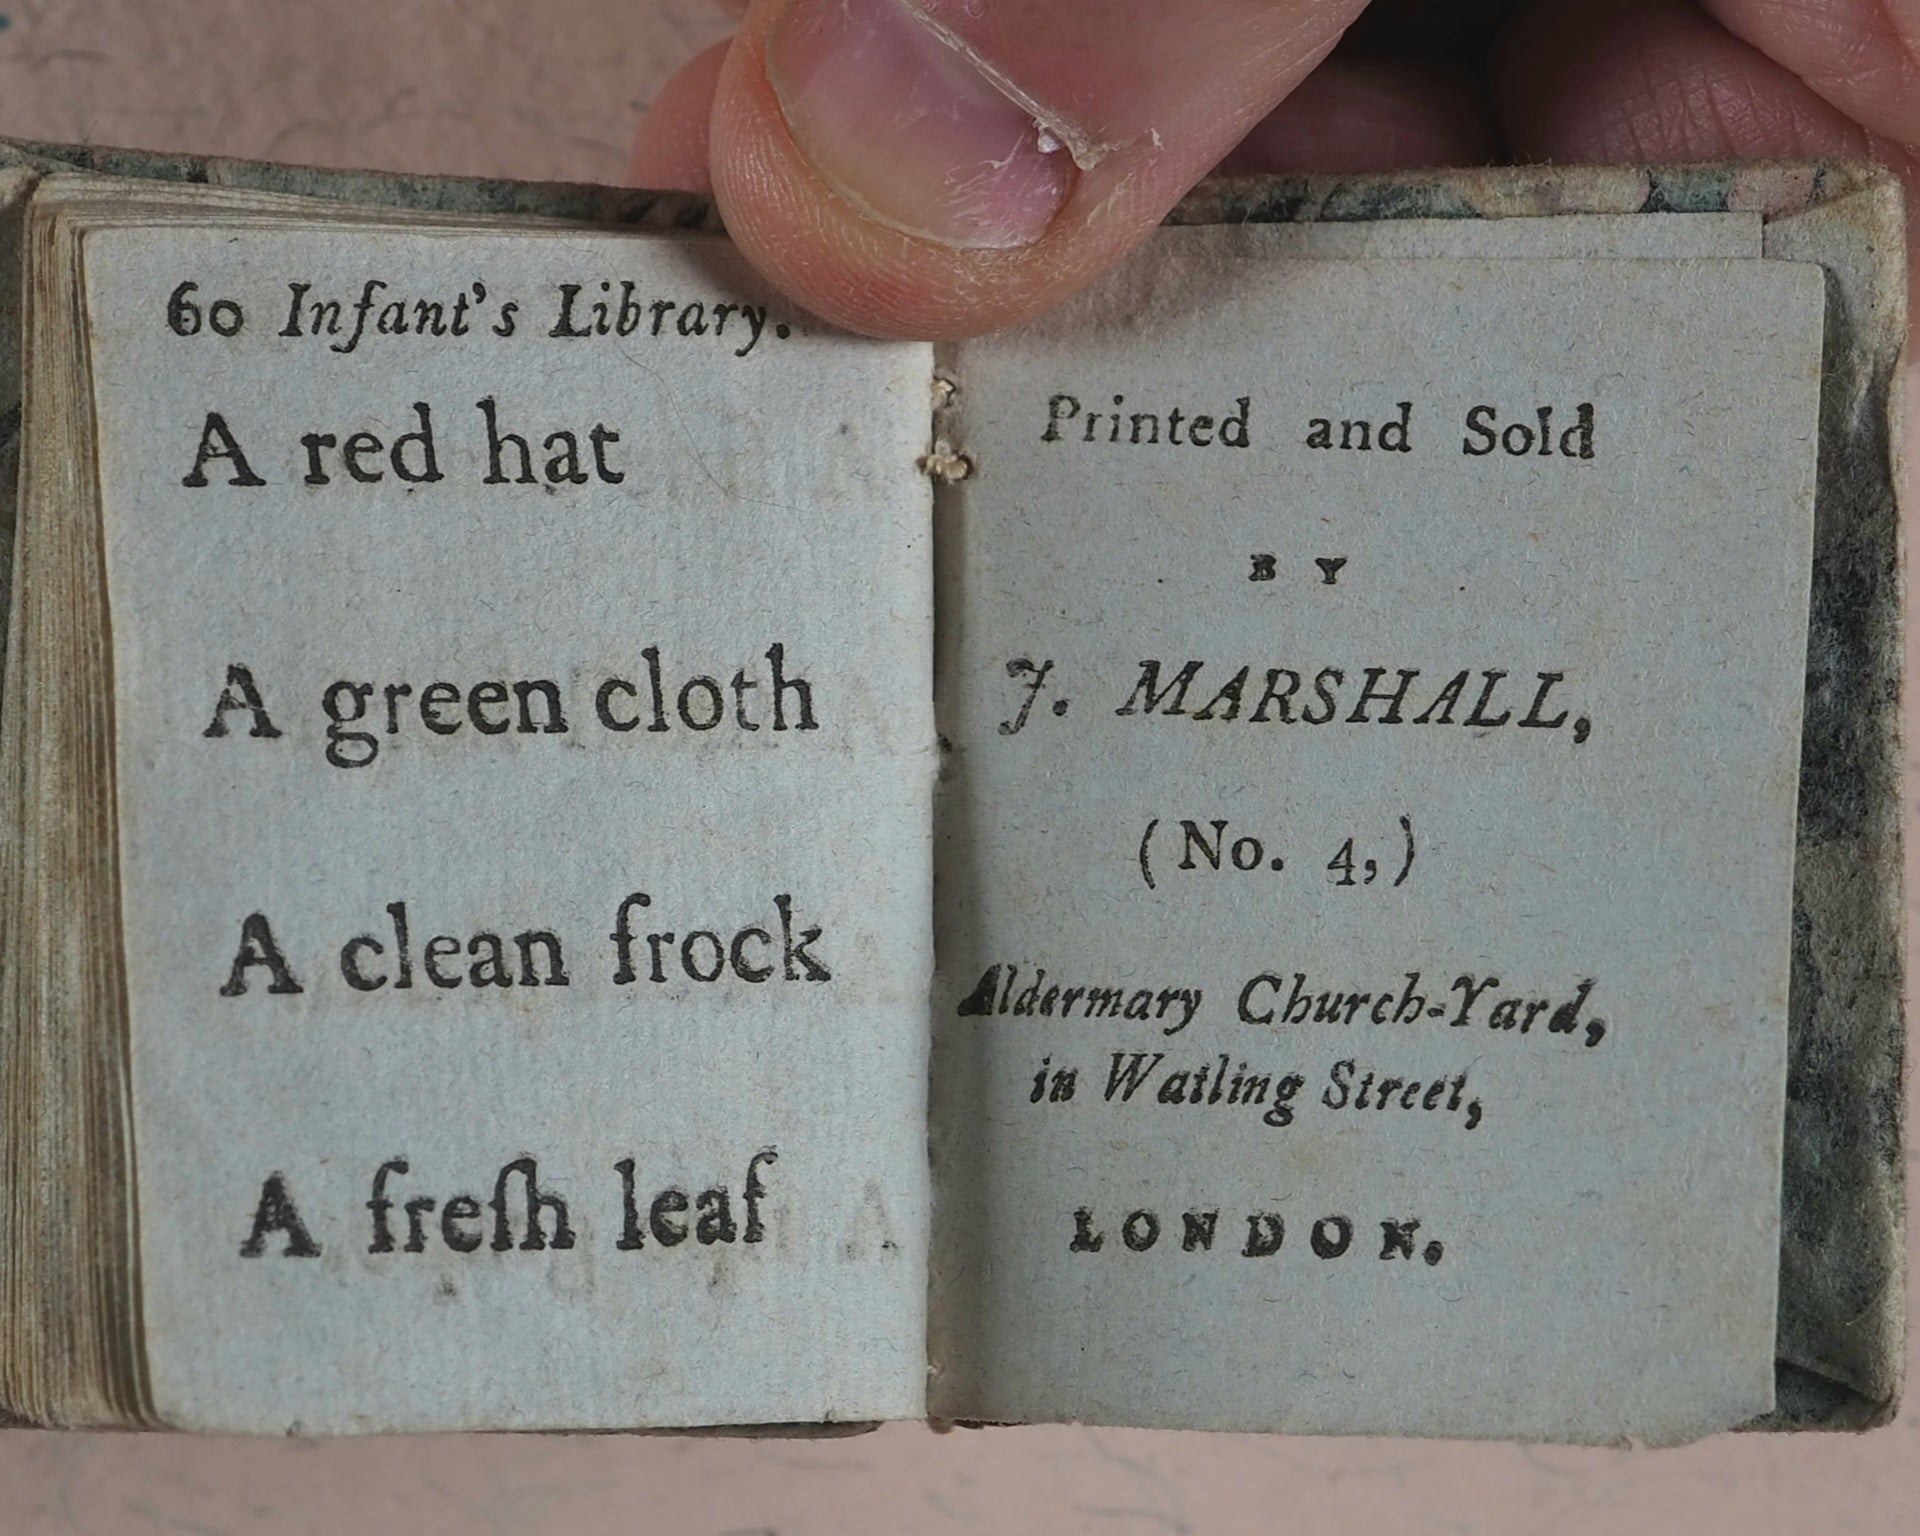 60 Infant's Library.
A red hat
A green cloth
A clean frock
A freſh leaf
Printed and Sold
BY
J. MARSHALL,
(No. 4,)
Aldermary Church-Yard,
in Watling Street,
LONDON.